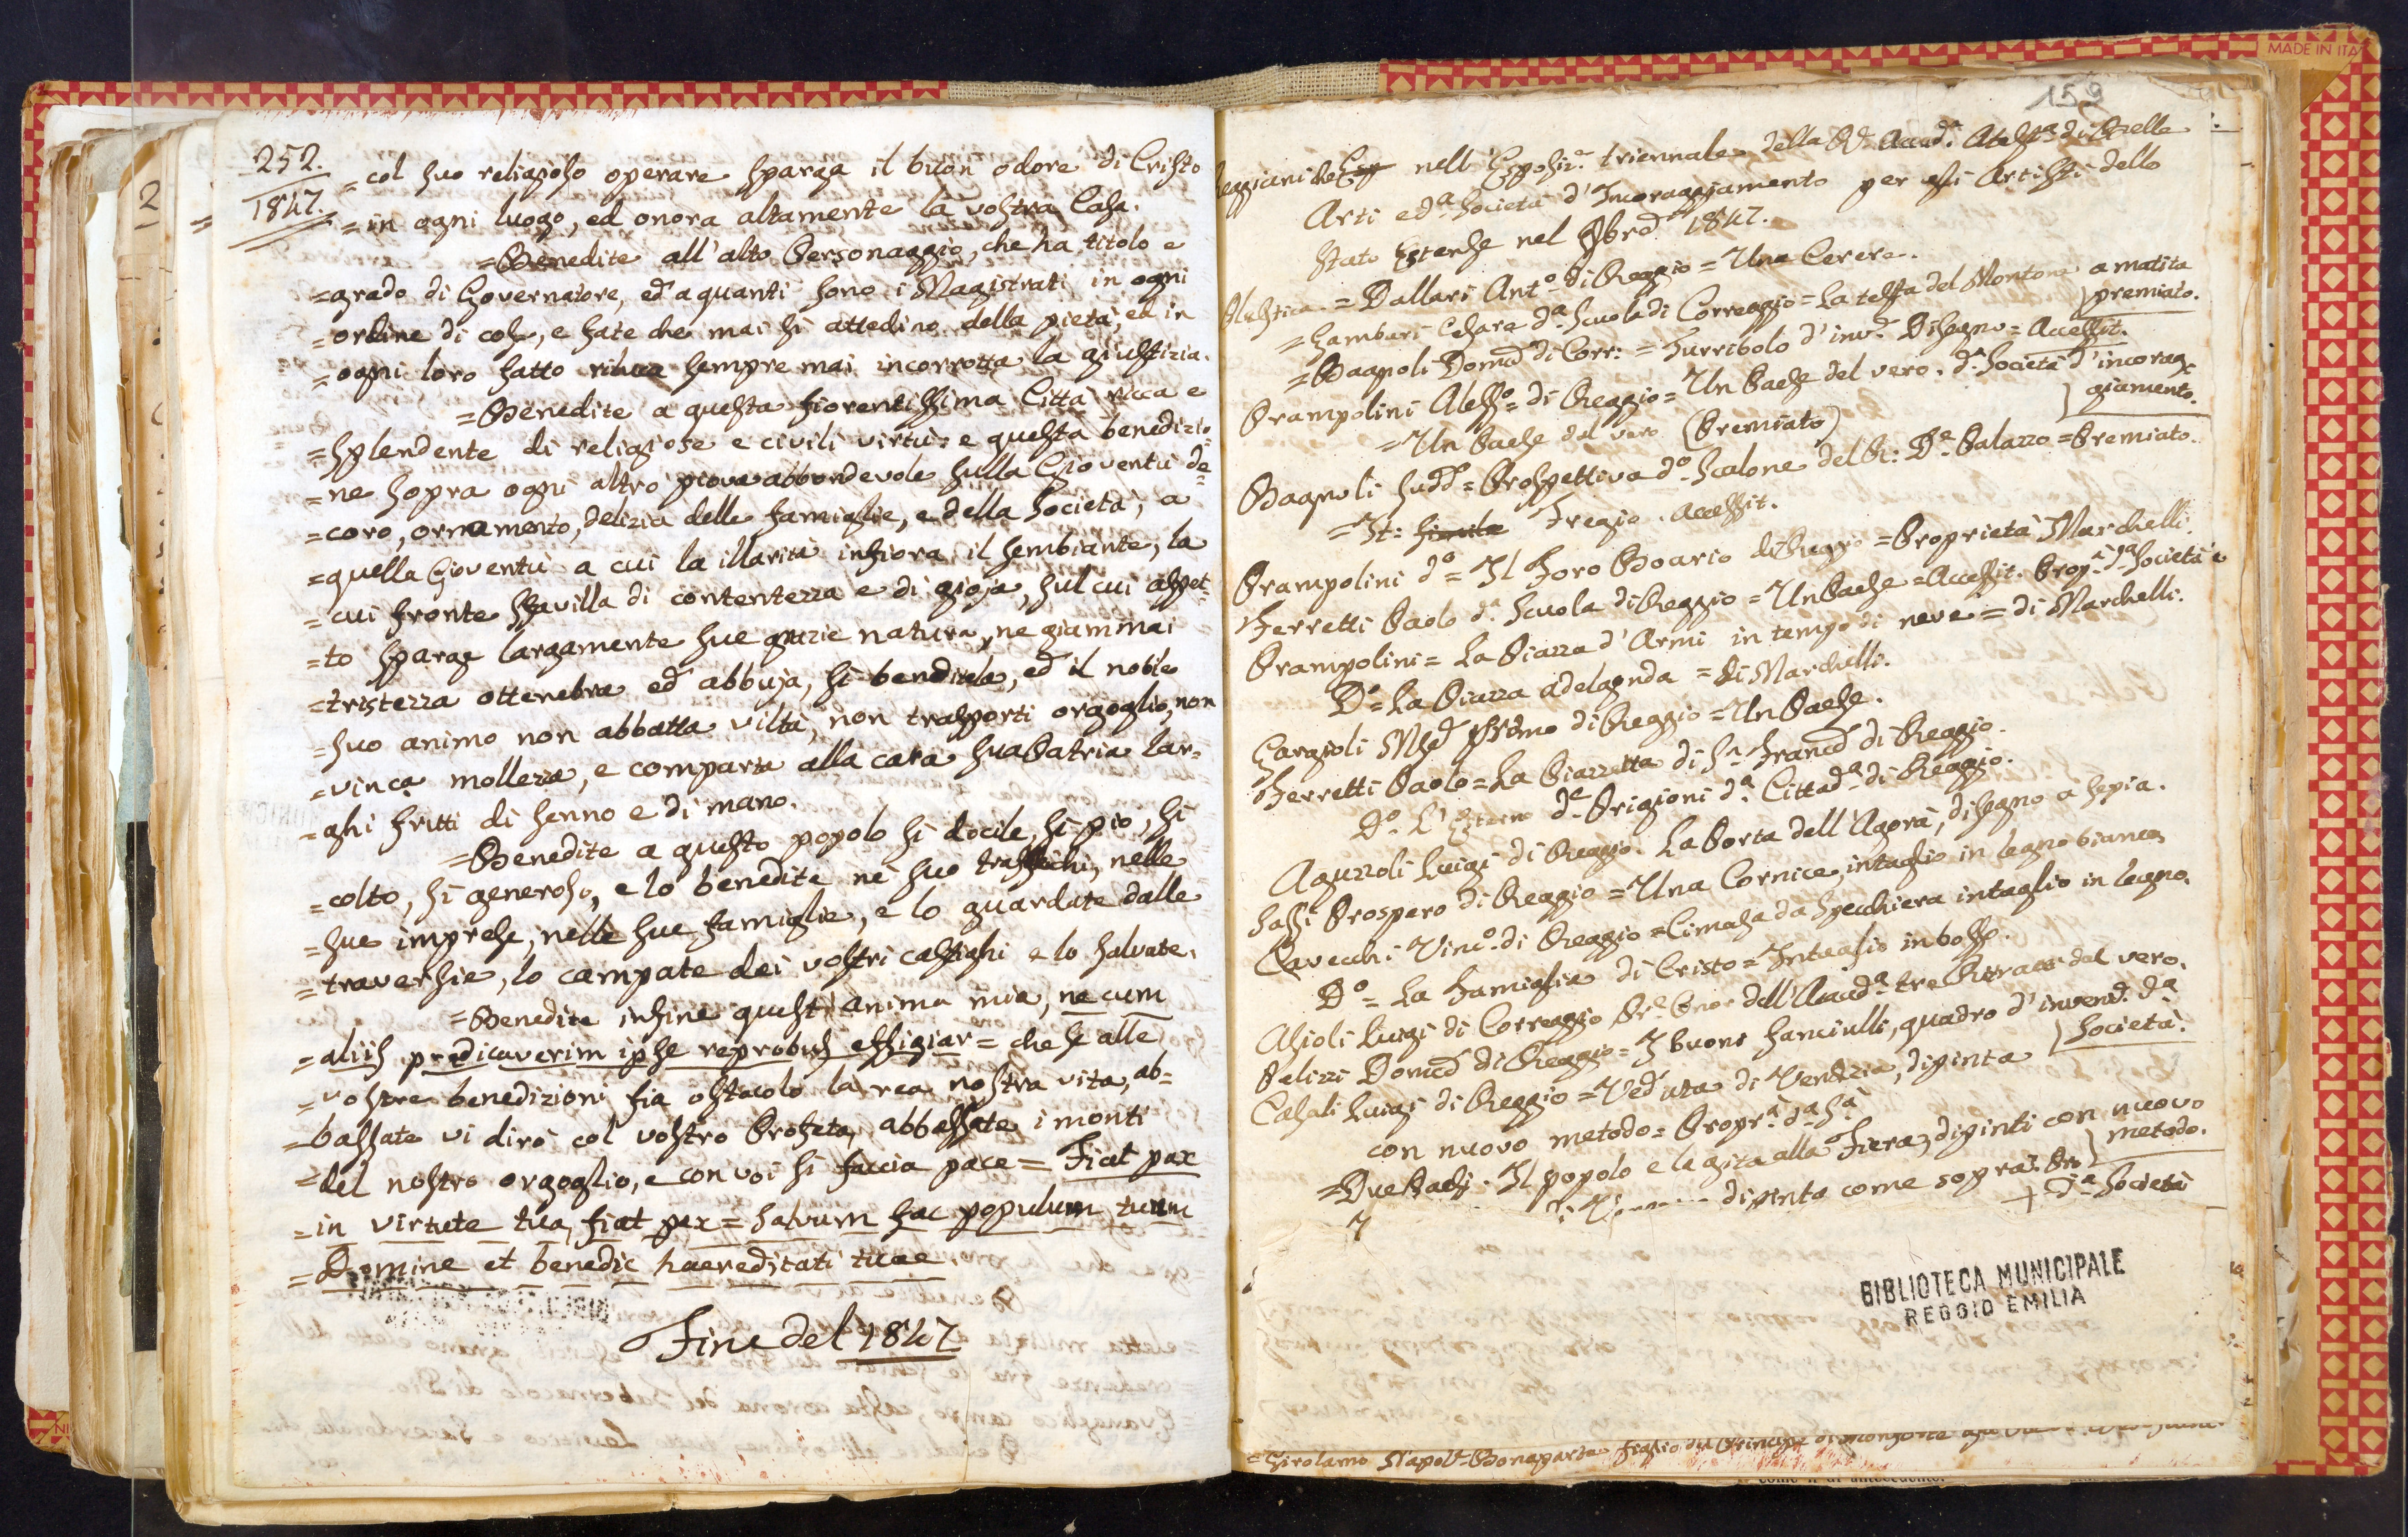 252.
1847.
=col suo religioso operare sparga il buon odore di Cristo
=in ogni luogo, ed onora altamente la vostra Casa.
=Benedite all'alto Personaggio, che ha titolo e
=grado di Governatore, ed a quanti sono i Magistrati in ogni
=ordine di cose, e fate che mai si attedino della pietà, ed in
=ogni loro fatto riluca sempre mai incorrotta la giustizia.
=Benedite a questa fiorentissima Città ricca e
=splendente di religiose e civili virtù: e questa benedizio=
=ne sopra ogni altro piova abbondevole sulla Gioventù de=
=coro, ornamento, delizia delle famiglie, e della Società, a
=quella Gioventù a cui la illarità infiora il sembiante, la
=cui fronte sfavilla di contentezza e di gioja, sul cui aspet=
=to sparge largamente sue grazie natura, ne giammai
=tristezza ottenebra ed abbuja, si beneditela, ed il nobile
=suo animo non abbatta viltà, non trasporti orgoglio, non
=vinca mollezza, e comparta alla cara sua Patria lar=
=ghi frutti di senno e di mano.
=Benedite a questo popolo sì docile, sì pio, sì
=colto, sì generoso, e lo benedite ne' suo traffichi, nelle
=sue imprese, nelle sue famiglie, e lo guardate dalle
=traversie, lo campate dei vostri castighi e lo salvate.
=Benedite infine quest'anima mia, ne cum
=aliis predicaverim ipse reprobus effigiar= che se alle
=vostre benedizioni fia ostacolo la rea nostra vita, ab=
=bassate vi dirò col vostro Profeta, abbassate i monti
=del nostro orgoglio, e con voi si faccia pace= Fiat pax
=in virtute tua, fiat pax= Salvum fac populum tuum
=Domine et benedic haereditati tuae.
Fine del 1847
159
nell'Esposiz.e triennale della R. Accad.a Atest.a di Belle
Arti ed.a Società d'Incoraggiamento per gli Artisti dello
Stato Estense nel 1847.
=Dallari Ant.o di Reggio= Una Cerere.
Cesare d.a Scuola di Correggio= La testa del Montone a matita
premiato.
Domco di Corr:= Turribolo d'inv.e Disegno= Accessit.
Prampolini Aless.o di Reggio= Un Paese del vero. d.a Società d'incorag=
giamento.
=Un Paese dal vero (Premiato)
Bagnoli sudd.= Prospettiva d.o Scalone del R: D.e Palazzo= Premiato.
=It: Fregio. Accessit.
Prampolini d.o= Il Foro Boario di Reggio= Proprietà Marchelli.
Ferretti Paolo d.a Scuola di Reggio= Un Paese= Accessit. Prop.à d.a Società
Prampolini= La Piazza d'Armi in tempo di neve= di Marchelli.
D.o= La Piazza Adelagnda= di Marchelli.
Gargioli di Reggio= Un Paese.
Ferretti Paolo= La Piazzetta di S.n Franco di Reggio.
D.o L'Esterno d.e Prigioni d.a Cittad.a di Reggio.
Aguzzoli Luigi di Reggio. La Porta dell'Agorà, disegno a sepia.
Sassi Prospero di Reggio= Una Cornice, intaglio in legno bianco
Cavecchi Vinc.o di Reggio= Cimasa da Specchiera intaglio in legno.
D.o= La Famiglia di Cristo= Intaglio in bosso.
Asioli Luigi di Correggio Pr.e Onor dell'Accad.a tre Ritratti dal vero.
Pelizzi Domco di Reggio= I buoni fanciulli, quadro d'invenz. d.a
Società.
Casali Luigi di Reggio= Veduta di Venezia, dipinta
con nuovo metodo= Propr.à d.a S.à
=Due Paesi. Il popolo e la gita alla Fiera, dipinti con nuovo
metodo.
dipinta come sopra
d.a Società
BIBLIOTECA MUNICIPALE
REGGIO EMILIA
=Girolamo Napol.e Bonaparte, figlio del Principe
MADE IN ITA